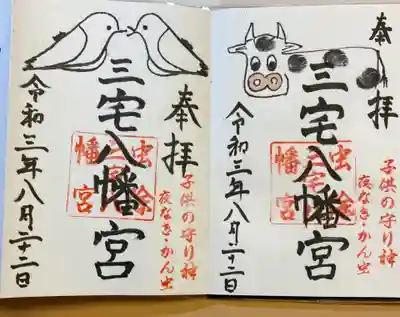 奉拝
子供の守り神
夜なき・かん虫
三宅八幡宮
虫除
幡宮
令和三年八月二十二日
奉拝
子供の守り神
夜なき・かん虫
三宅八幡宮
虫除
幡宮
令和三年八月二十二日